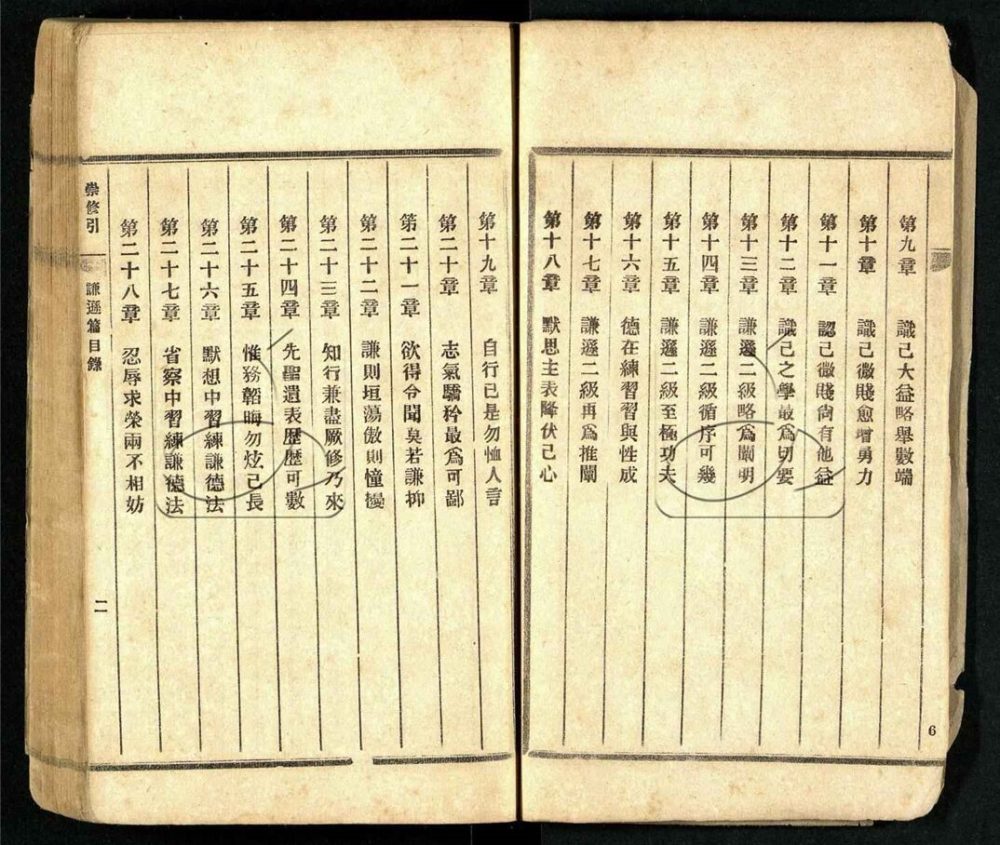 第九章 識己大益略舉數端
第十章 識己微賤愈增勇力
第十一章 認己微賤尙有他益
第十二章 識己之學最爲切要
第十三章 謙遜二級略爲闡明
第十四章 謙遜二級循序可幾
第十五章 謙遜二級至極功夫
第十六章 德在練習習與性成
第十七章 謙遜二級再爲推闡
第十八章 默思主表降伏己心
6
第十九章 自行已是勿恤人言
第二十章 志氣驕矜最爲可鄙
第二十一章 欲得令聞莫若謙抑
第二十二章 謙則垣蕩傲則憧擾
第二十三章 知行兼盡厥修乃來
第二十四章 先聖遺表歷歷可數
第二十五章 惟務韜晦勿炫己長
第二十六章 默想中習練謙德法
第二十七章 省察中習練謙德法
第二十八章 忍辱求榮兩不相妨
崇修引 謙遜篇目錄 二